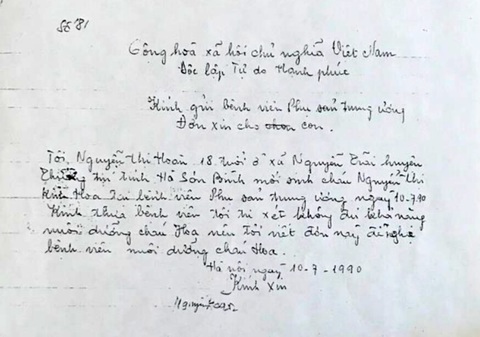 Số 81
Cộng hoà xã hội chủ nghĩa Việt Nam
Độc lập Tự do Hạnh phúc
Kính gửi bệnh viện Phụ sản trung ương
Đơn xin cho con.
Tôi, Nguyễn Thị Hoan 18 tuổi ở xã Nguyễn Trãi huyện
Thường tín tỉnh Hà Sơn Bình mới sinh cháu Nguyễn Thị
Hoa tại bệnh viện Phụ sản trung ương ngày 10-7.90
Kính thưa bệnh viện tôi tự xét không đủ khả năng
nuôi dưỡng cháu Hoa nên tôi viết đơn này đề nghị
bệnh viện nuôi dưỡng cháu Hoa.
Hà nội, ngày 10-7-1990
Kính Xin